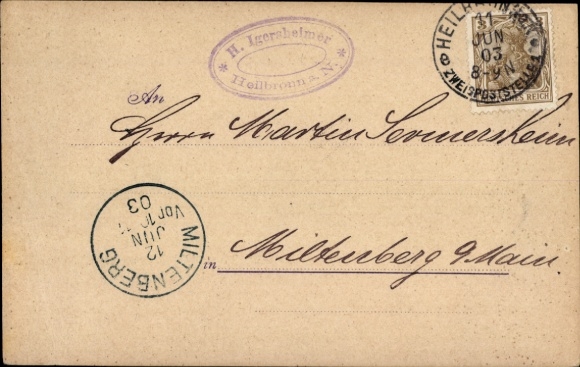 H. Igersheimer
Heilbronn a. N.
HEILBRONN
11
JUN
03
8-9N
ZWEIGPOSTSTELLE 1
REICH
An
Herrn Martin Sommersheim
MILTENBERG
12
JUN
03
Vor 10
in Miltenberg a Main.